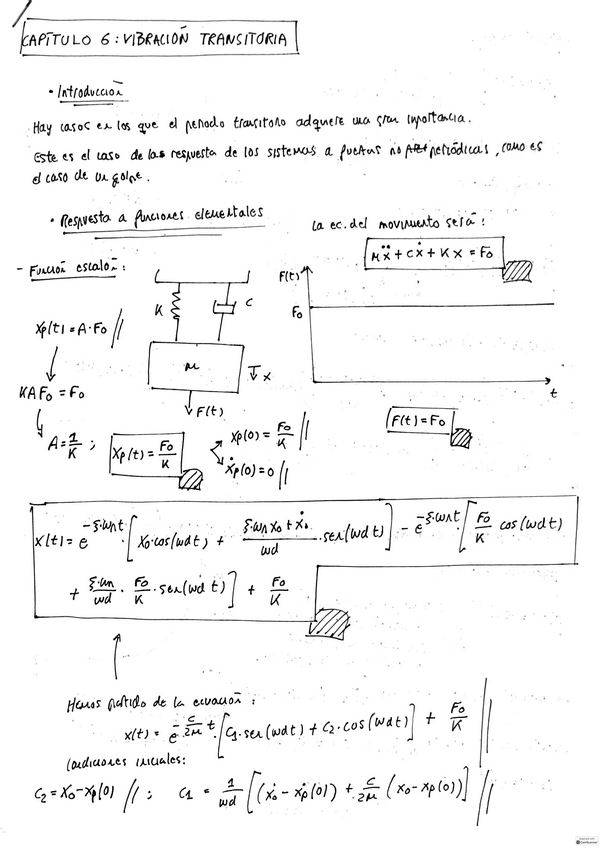 CAPÍTULO 6: VIBRACIÓN TRANSITORIA
• Introducción
Hay casos en los que el periodo transitorio adquiere una gran importancia.
Este es el caso de las respuesta de los sistemas a fuerzas no periódicas, como es
el caso de un golpe.
• Respuesta a funciones elementales
La ec. del movimiento será:
Mẍ + cẋ + Kx = F₀
- Función escalón:
K
C
M
x
F(t)
F(t)
F₀
t
F(t) = F₀
xp(t) = A·F₀ //
KAF₀ = F₀
A = 1/K ; xp(t) = F₀/K
xp(0) = F₀/K //
ẋp(0) = 0 //
x(t) = e^(-ξ·ωn t) [x₀·cos(ωd t) + (ξ·ωn x₀ + ẋ₀)/ωd · sen(ωd t)] - e^(-ξ·ωn t) [F₀/K cos(ωd t)
+ ξ·ωn/ωd · F₀/K · sen(ωd t)] + F₀/K
Hemos partido de la ecuación:
x(t) = e^(-c/2M t) [C₁·sen(ωd t) + C₂·cos(ωd t)] + F₀/K //
Condiciones iniciales:
C₂ = x₀ - xp(0) // ; C₁ = 1/ωd [(ẋ₀ - ẋp(0)) + c/2M (x₀ - xp(0))] //
CamScanner